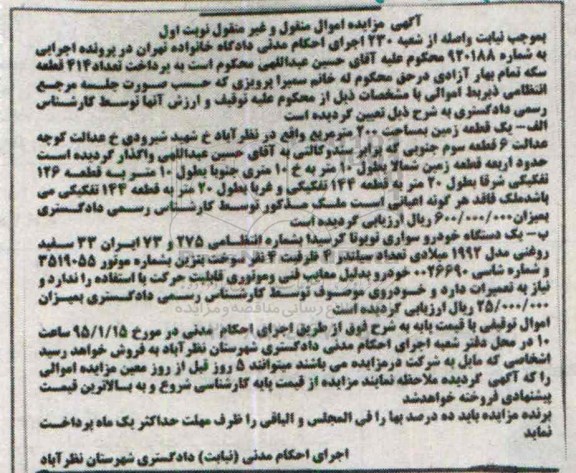 آگهی مزایده اموال منقول و غیر منقول نوبت اول
بموجب نیابت واصله از شعبه ۲۳۰ اجرای احکام مدنی دادگاه خانواده تهران در پرونده اجرایی
به شماره ۹۲۰۱۸۸ محکوم علیه آقای حسین عبداللهی محکوم است به پرداخت تعداد ۴۱۴ قطعه
سکه تمام بهار آزادی درحق محکوم له خانم سمیرا پرویزی که حسب صورت جلسه مرجع
انتظامی ذیربط اموالی با مشخصات ذیل از محکوم علیه توقیف و ارزش آنها توسط کارشناس
رسمی دادگستری به شرح ذیل تعیین گردیده است
الف- یک قطعه زمین بمساحت ۲۰۰ مترمربع واقع در نظرآباد خ شهید شیرودی خ عدالت کوچه
عدالت ۶ قطعه سوم جنوبی که برابر سندوکالتی به آقای حسین عبداللهی واگذار گردیده است
حدود اربعه قطعه زمین شمالا بطول ۱۰ متر به خ ۱۰ متری جنوبا بطول ۱۰ متر به قطعه ۱۲۶
تفکیکی شرقا بطول ۲۰ متر به قطعه ۱۴۴ تفکیکی و غربا بطول ۲۰ متر به قطعه ۱۴۴ تفکیکی می
باشدملک فاقد هر گونه اعیانی است ملک مذکور توسط کارشناس رسمی دادگستری
بمیزان ۶۰۰/۰۰۰/۰۰۰ ریال ارزیابی گردیده است
ب- یک دستگاه خودرو سواری تویوتا کرسیدا بشماره انتظامی ۲۷۵ و ۷۳ ایران ۳۳ سفید
روغنی مدل ۱۹۹۲ میلادی تعداد سیلندر ۴ ظرفیت ۴ نفر سوخت بنزین بشماره موتور ۳۵۱۹۰۵۵
و شماره شاسی ۰۰۲۶۶۹۰ خودرو بدلیل معایب فنی وموتوری قابلیت حرکت یا استفاده را ندارد و
نیاز به تعمیرات دارد و خودروی موصوف توسط کارشناس رسمی دادگستری بمیزان
۲۵/۰۰۰/۰۰۰ ریال ارزیابی گردیده است
اموال توقیفی با قیمت پایه به شرح فوق از طریق اجرای احکام مدنی در مورخ ۹۵/۱/۱۵ ساعت
۱۰ در محل دفتر شعبه اجرای احکام مدنی دادگستری شهرستان نظرآباد به فروش خواهد رسید
اشخاصی که مایل به شرکت درمزایده می باشند میتوانند ۵ روز قبل از روز معین مزایده اموالی
را که آگهی گردیده ملاحظه نمایند مزایده از قیمت پایه کارشناسی شروع و به بالاترین قیمت
پیشنهادی فروخته خواهدشد
برنده مزایده باید ده درصد بها را فی المجلس و الباقی را ظرف مهلت حداکثر یک ماه پرداخت
نماید
اجرای احکام مدنی (نیابت) دادگستری شهرستان نظرآباد